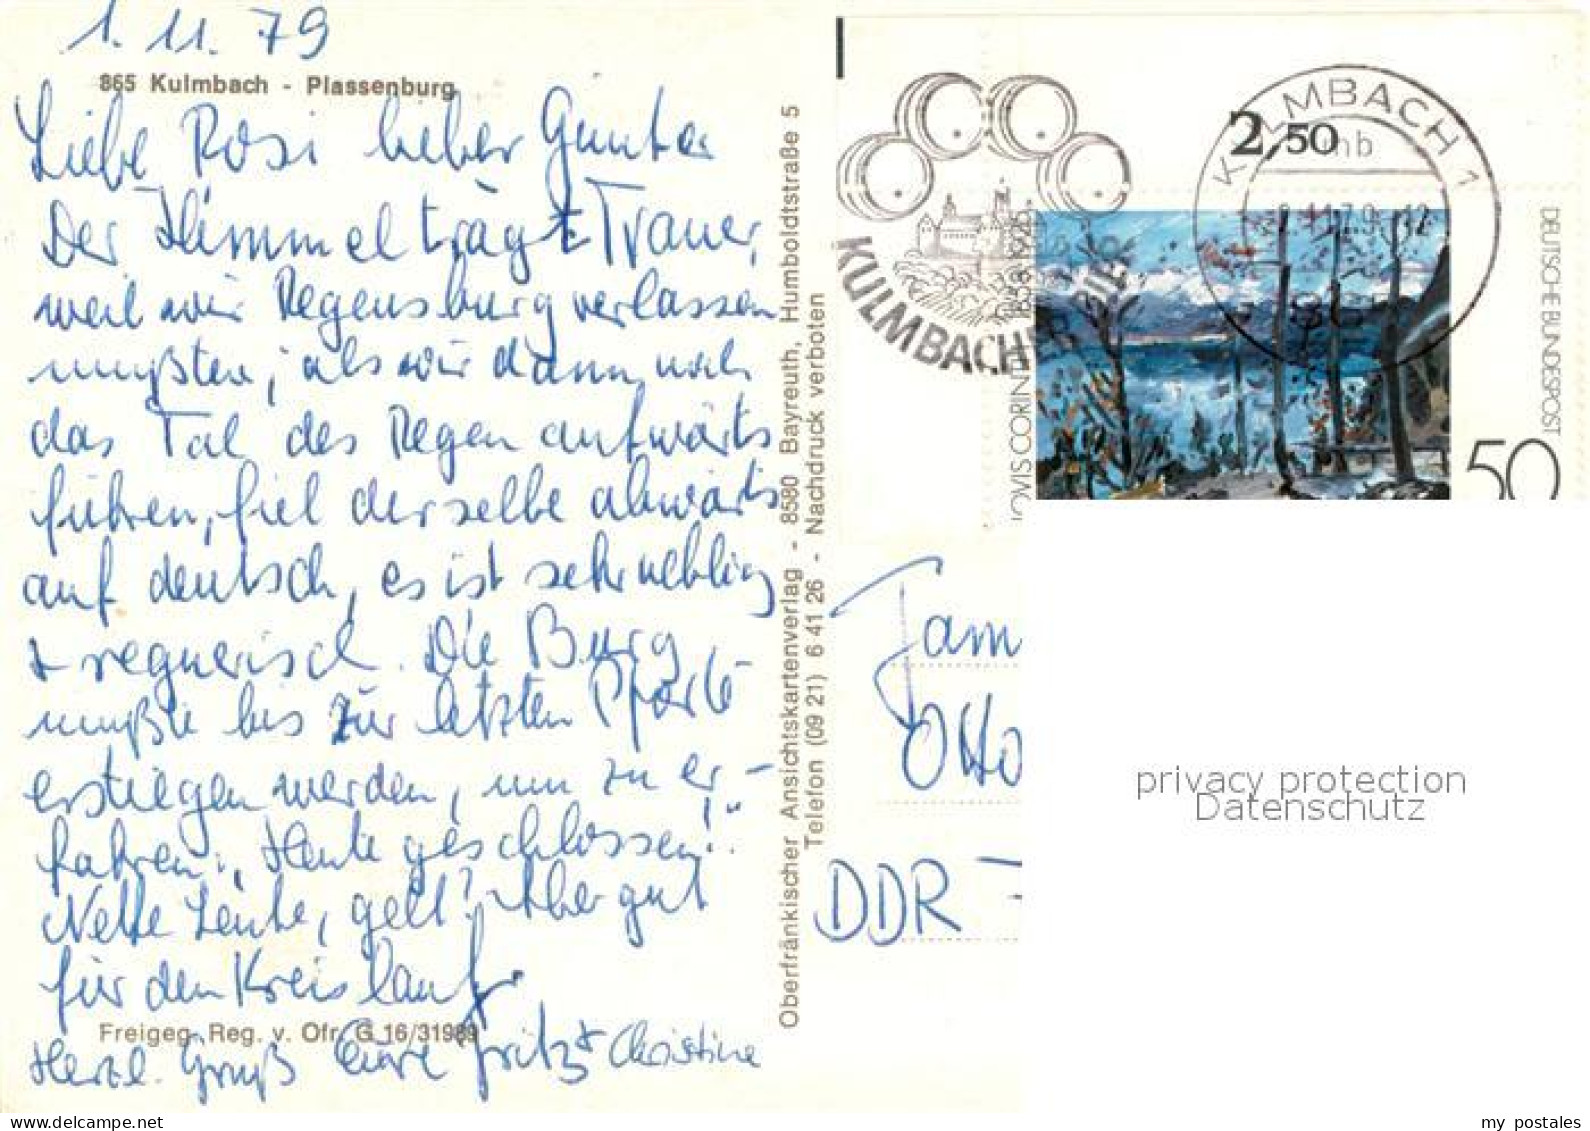 1. 11. 79
865 Kulmbach - Plassenburg
Liebe Rosi lieber Günter
Der Himmel trägt Trauer,
weil wir Regensburg verlassen
mußten; als wir dann nach
das Tal des Regen aufwärts
fuhren, fiel derselbe abwärts
auf deutsch, es ist sehr neblig
+ regnerisch. Die Burg
mußte bis zur letzten Pforte
erstiegen werden, um zu er-
fahren „Heute geschlossen!"
Nette Leute, gell? Aber gut
für den Kreislauf.
Freigeg. Reg. v. Ofr. G 16/31989
Herzl. Gruß Eure Fritz + Christine
Oberfränkischer Ansichtskartenverlag - 8580 Bayreuth, Humboldtstraße 5
Telefon (09 21) 6 41 26 - Nachdruck verboten
KULMBACHER
KULMBACH 1
2,50
mb
DEUTSCHE BUNDESPOST
50
OVIS CORINT
Fam
Otto
DDR -
privacy protection
Datenschutz
my postales